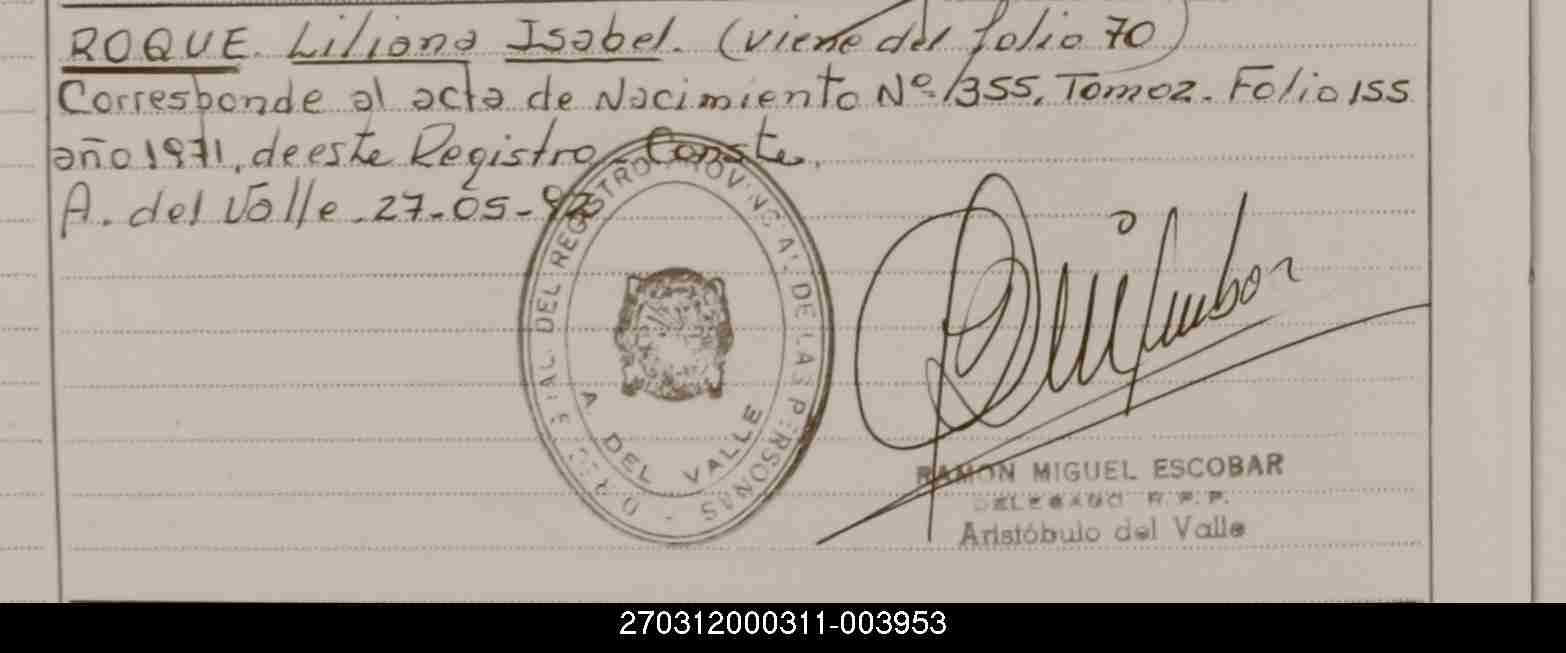 ROQUE. Liliana Isabel. (viene del folio 70)
Corresponde al acta de Nacimiento Nº 1355, Tomo 2. Folio 155
año 1971, de este Registro. Conste.
A. del Valle. 27-05-92
DEL REGISTRO PROVINCIAL DE LAS PERSONAS
A. DEL VALLE
RAMON MIGUEL ESCOBAR
DELEGADO R. P. P.
Aristóbulo del Valle
270312000311-003953